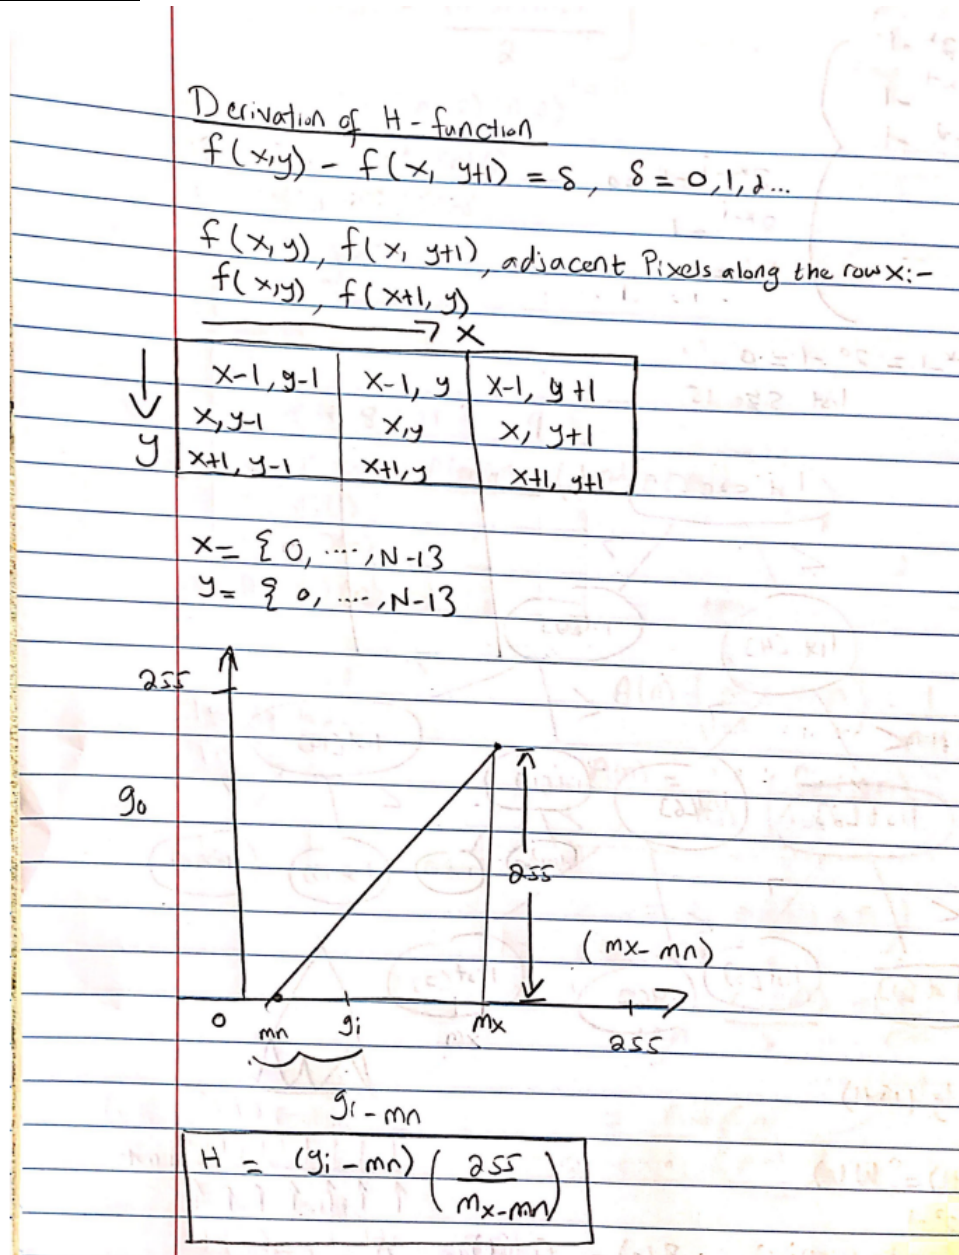 Derivation of H-function
f(x,y) - f(x, y+1) = δ, δ = 0,1,2...
f(x,y), f(x, y+1), adjacent Pixels along the row x:-
f(x,y), f(x+1, y)
→ x
x-1, y-1 x-1, y x-1, y+1
x, y-1 x,y x, y+1
y x+1, y-1 x+1, y x+1, y+1
x = {0, ...., N-1}
y = {0, ...., N-1}
255
g0
255
(mx-mn)
0 mn gi mx 255
gi-mn
H = (gi-mn) (255/mx-mn)